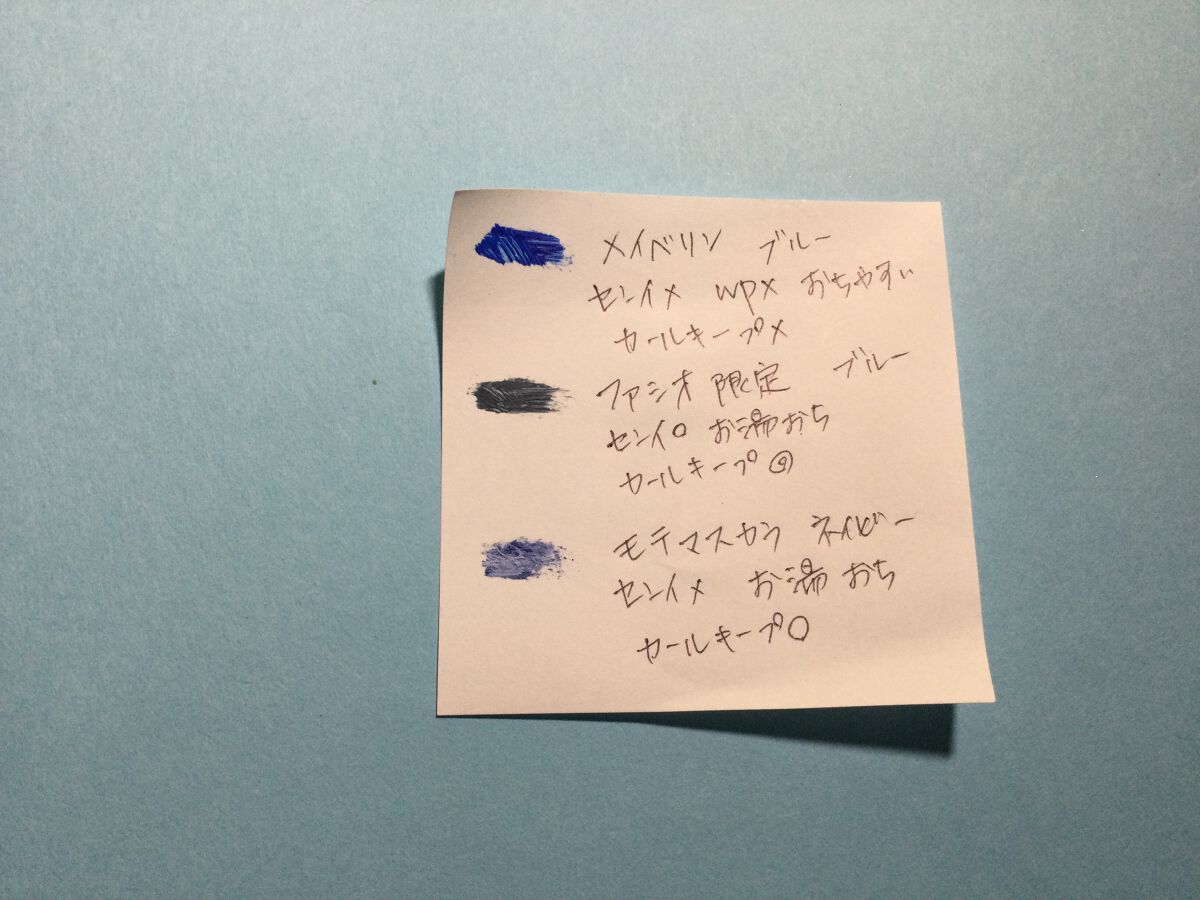 メイベリン ブルー
センイ× wp× おちやすい
カールキープ×
ファシオ 限定 ブルー
センイ○ お湯おち
カールキープ◎
モテマスカラ ネイビー
センイ× お湯おち
カールキープ○